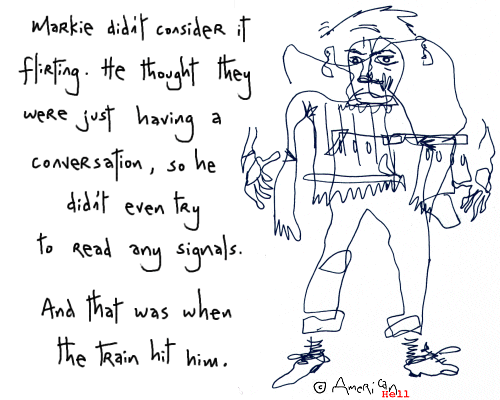 Markie didn't consider it
flirting. He thought they
were just having a
conversation, so he
didn't even try
to read any signals.
And that was when
the train hit him.
© American
Hell